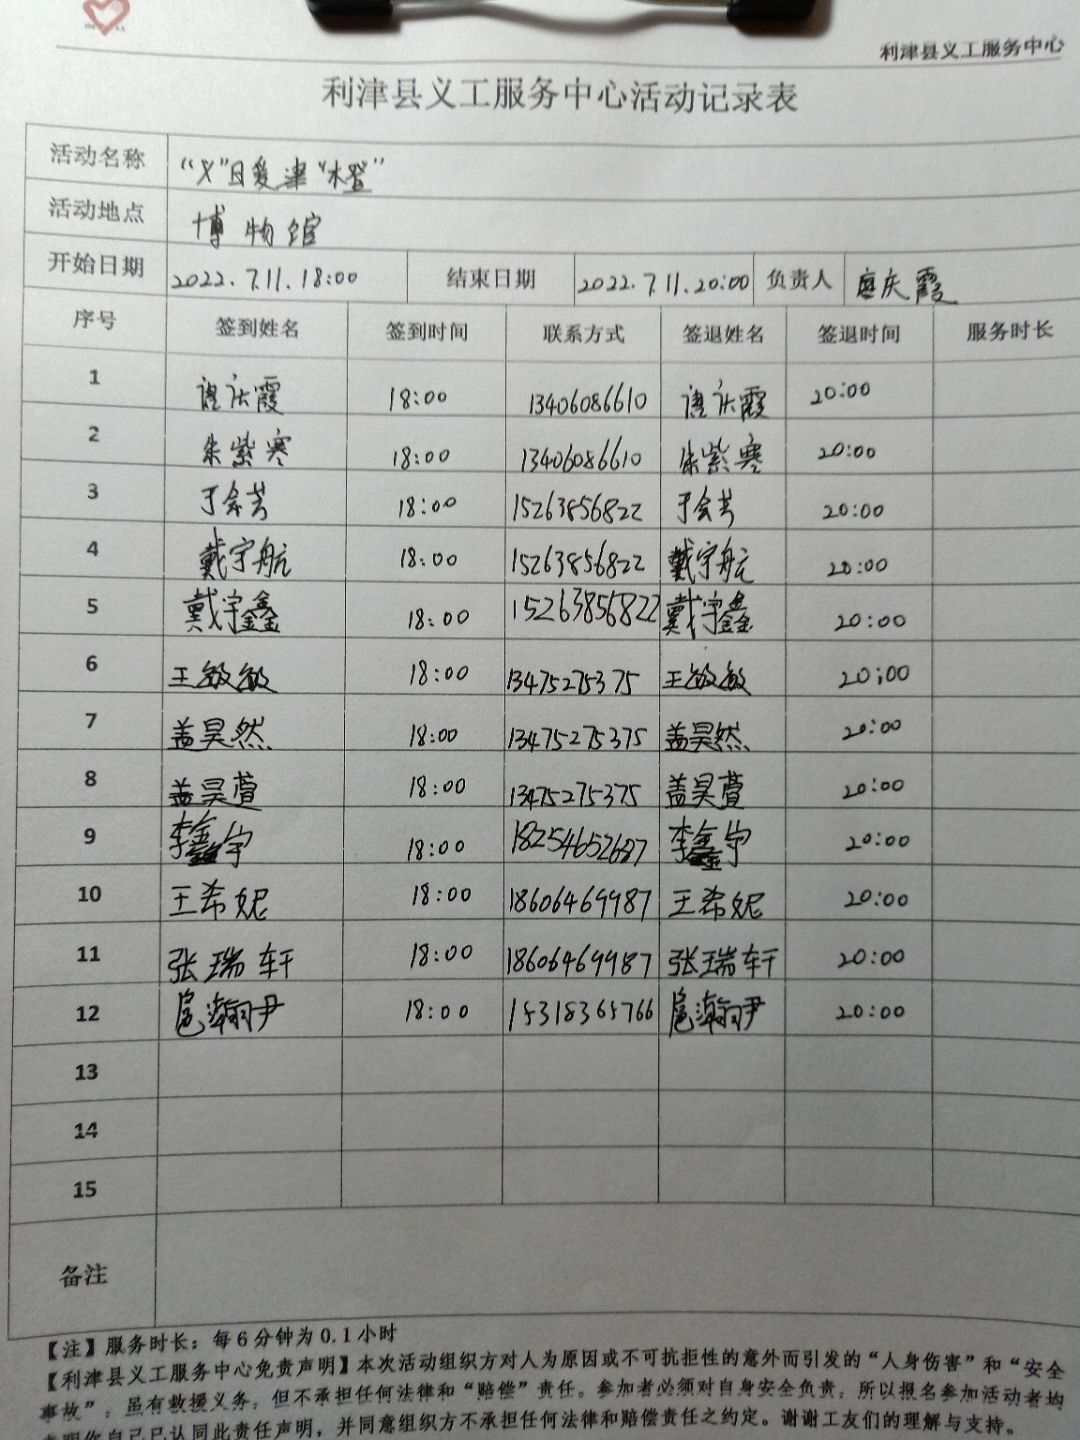 利津县义工服务中心
利津县义工服务中心活动记录表
活动名称 “义”日爱津“橙”
活动地点 博物馆
开始日期 2022.7.11.18:00 结束日期 2022.7.11.20:00 负责人 庆霞
序号 签到姓名 签到时间 联系方式 签退姓名 签退时间 服务时长
1 庆霞 18:00 13406086610 庆霞 20:00
2 朱紫寒 18:00 13406086610 朱紫寒 20:00
3 于会芳 18:00 15263856822 于会芳 20:00
4 戴宇航 18:00 15263856822 戴宇航 20:00
5 戴宇鑫 18:00 15263856822 戴宇鑫 20:00
6 王敏敏 18:00 13475275375 王敏敏 20:00
7 盖昊然 18:00 13475275375 盖昊然 20:00
8 盖昊萱 18:00 13475275375 盖昊萱 20:00
9 李鑫宇 18:00 18254652687 李鑫宇 20:00
10 王希妮 18:00 18606469987 王希妮 20:00
11 张瑞轩 18:00 18606469987 张瑞轩 20:00
12 扈瀚尹 18:00 15318365766 扈瀚尹 20:00
13
14
15
备注
【注】服务时长：每6分钟为0.1小时
【利津县义工服务中心免责声明】本次活动组织方对人为原因或不可抗拒性的意外而引发的“人身伤害”和“安全
事故”，虽有救援义务，但不承担任何法律和“赔偿”责任。参加者必须对自身安全负责，所以报名参加活动者均
表明你自己已认同此责任声明，并同意组织方不承担任何法律和赔偿责任之约定。谢谢工友们的理解与支持。